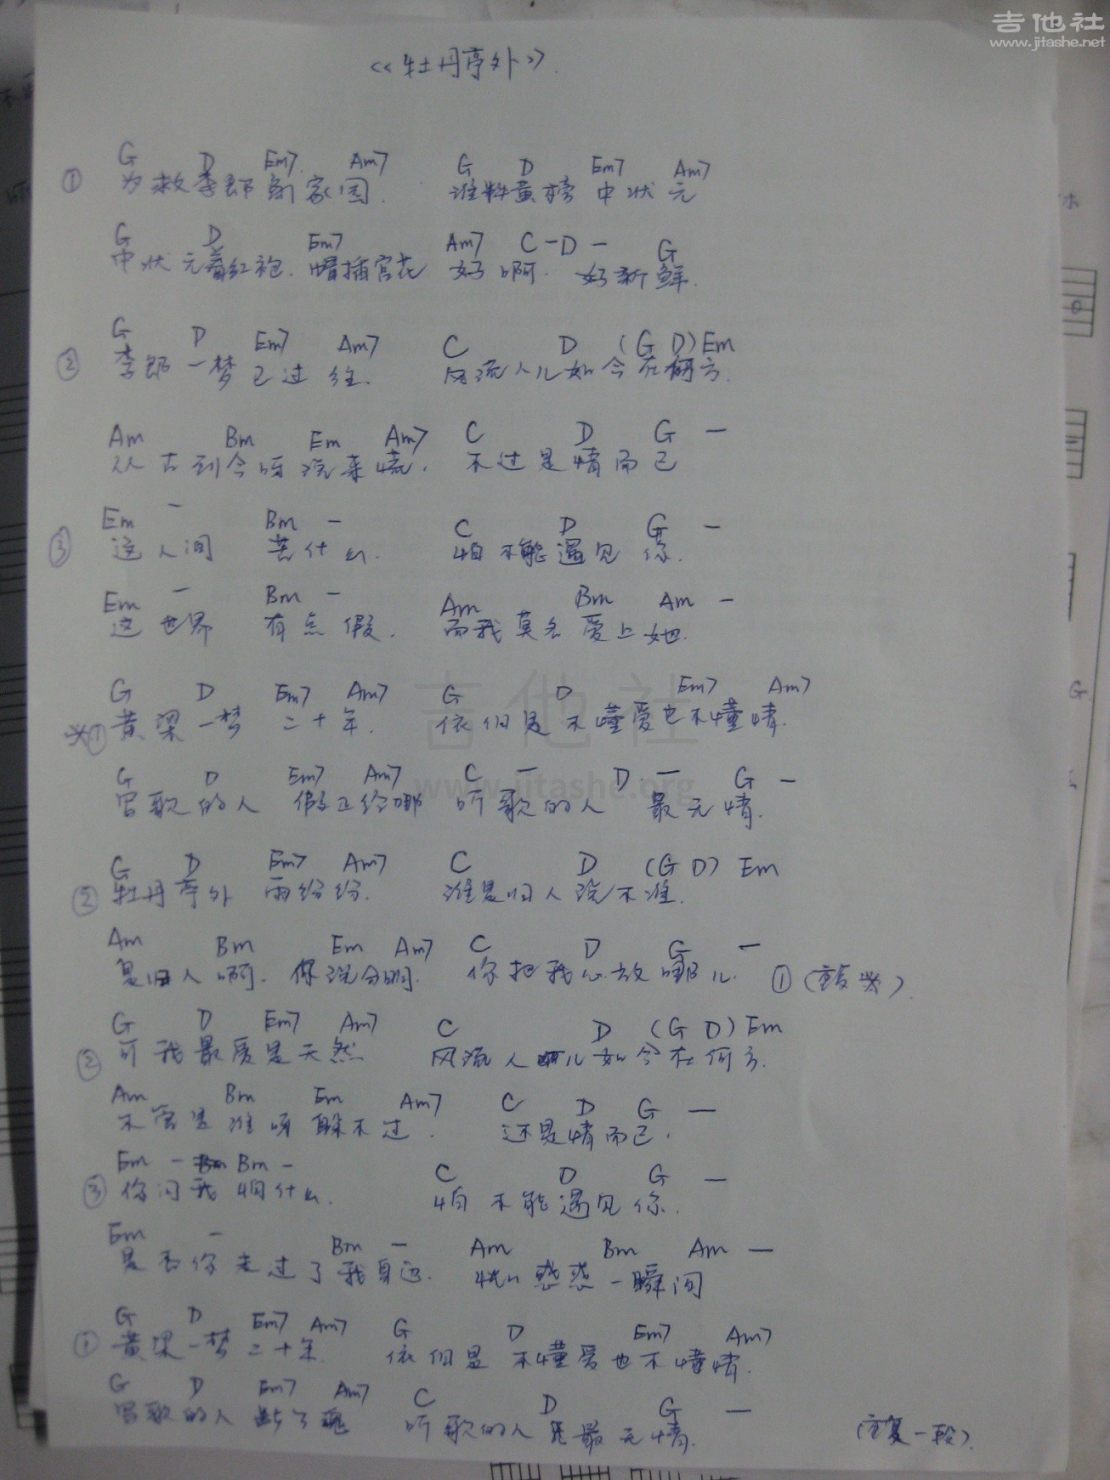 吉他社
www.jitashe.net
《牡丹亭外》
G D Em7 Am7 G D Em7 Am7
① 为救李郎离家园. 谁料黄榜中状元
G D Em7 Am7 C - D - G
中状元着红袍. 帽插宫花 好啊. 好新鲜.
G D Em7 Am7 C D (G D) Em
② 李郎一梦已过往. 风流人儿如今在何方.
Am Bm Em Am7 C D G —
从古到今说来慌. 不过是情而已
Em - Bm - C D G -
③ 这人间 苦什么. 怕不能遇见你.
Em - Bm - Am Bm Am -
这世界 有点假. 而我莫名爱上她.
G D Em7 Am7 G D Em7 Am7
※① 黄梁一梦 二十年. 依旧是不懂爱也不懂情.
G D Em7 Am7 C - D - G -
写歌的人 假正经哪 听歌的人 最无情.
G D Em7 Am7 C D (G D) Em
② 牡丹亭外 雨纷纷. 谁是归人说不准.
Am Bm Em Am7 C D G —
是归人啊. 你说分明. 你把我心放哪儿. ①
G D Em7 Am7 C D (G D) Em
② 可我最爱是天然 风流人儿如今在何方.
Am Bm Em Am7 C D G —
不管是谁呀躲不过. 还是情而已.
Em - Bm - C D G —
③ 你问我 怕什么. 怕不能遇见你.
Em - Bm - Am Bm Am —
是否你走过了我身边. 恍恍惑惑一瞬间
G D Em7 Am7 G D Em7 Am7
① 黄梁一梦二十年. 依旧是 不懂爱也不懂情.
G D Em7 Am7 C D G —
写歌的人 断了魂 听歌的人是最无情. (重复一段).
吉他社
www.jitashe.org
G